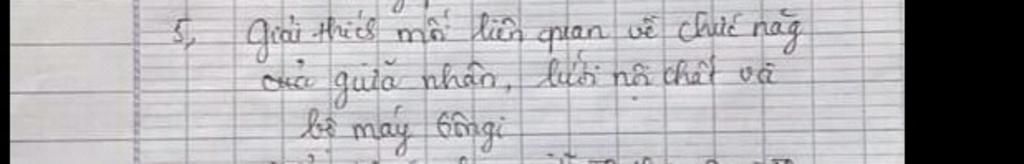 5, Giải thích mối liên quan về chức năg
giữa nhân, lưới nội chất và
bộ máy Gôngi